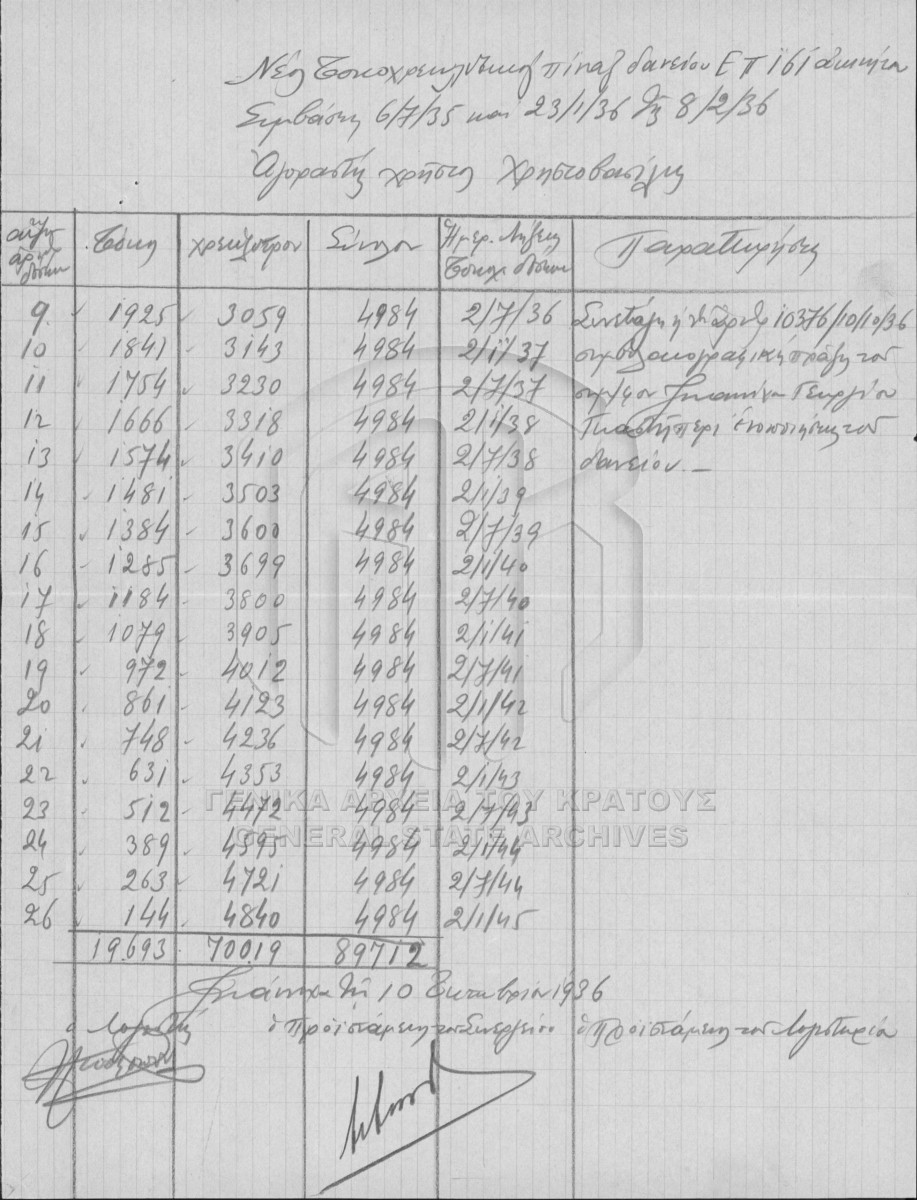 Νέος τοκοχρεωλυτικός πίναξ δανείου Ε Π 161 ακινήτου
Συμβάσεις 6/7/35 και 23/1/36 8/2/36
Αγοραστής Χρήστος Χρηστοβασίλης
αριθ δόσεων Τόκος χρεώλυτρον Σύνολον Ημερ. Λήξεως Τοκοχ. δόσεων Παρατηρήσεις
9. 1925 3059 4984 2/7/36 Συνετάγη 10376/10/10/36
10 1841 3143 4984 2/1/37 συμβολαιογραφική πράξη του
11 1754 3230 4984 2/7/37 Γεωργίου
12 1666 3318 4984 2/1/38 περί ενοποιήσεως του
13 1574 3410 4984 2/7/38 δανείου.—
14 1481 3503 4984 2/1/39
15 1384 3600 4984 2/7/39
16 1285 3699 4984 2/1/40
17 1184 3800 4984 2/7/40
18 1079 3905 4984 2/1/41
19 972 4012 4984 2/7/41
20 861 4123 4984 2/1/42
21 748 4236 4984 2/7/42
22 631 4353 4984 2/1/43
23 512 4472 4984 2/7/43
24 389 4595 4984 2/1/44
25 263 4721 4984 2/7/44
26 144 4840 4984 2/1/45
19.693 70019 89712
ΓΕΝΙΚΑ ΑΡΧΕΙΑ ΤΟΥ ΚΡΑΤΟΥΣ
GENERAL STATE ARCHIVES
τη 10 Οκτωβρίου 1936
ο Λογιστής ο Προϊστάμενος του Συνεργείου ο Προϊστάμενος του Λογιστηρίου